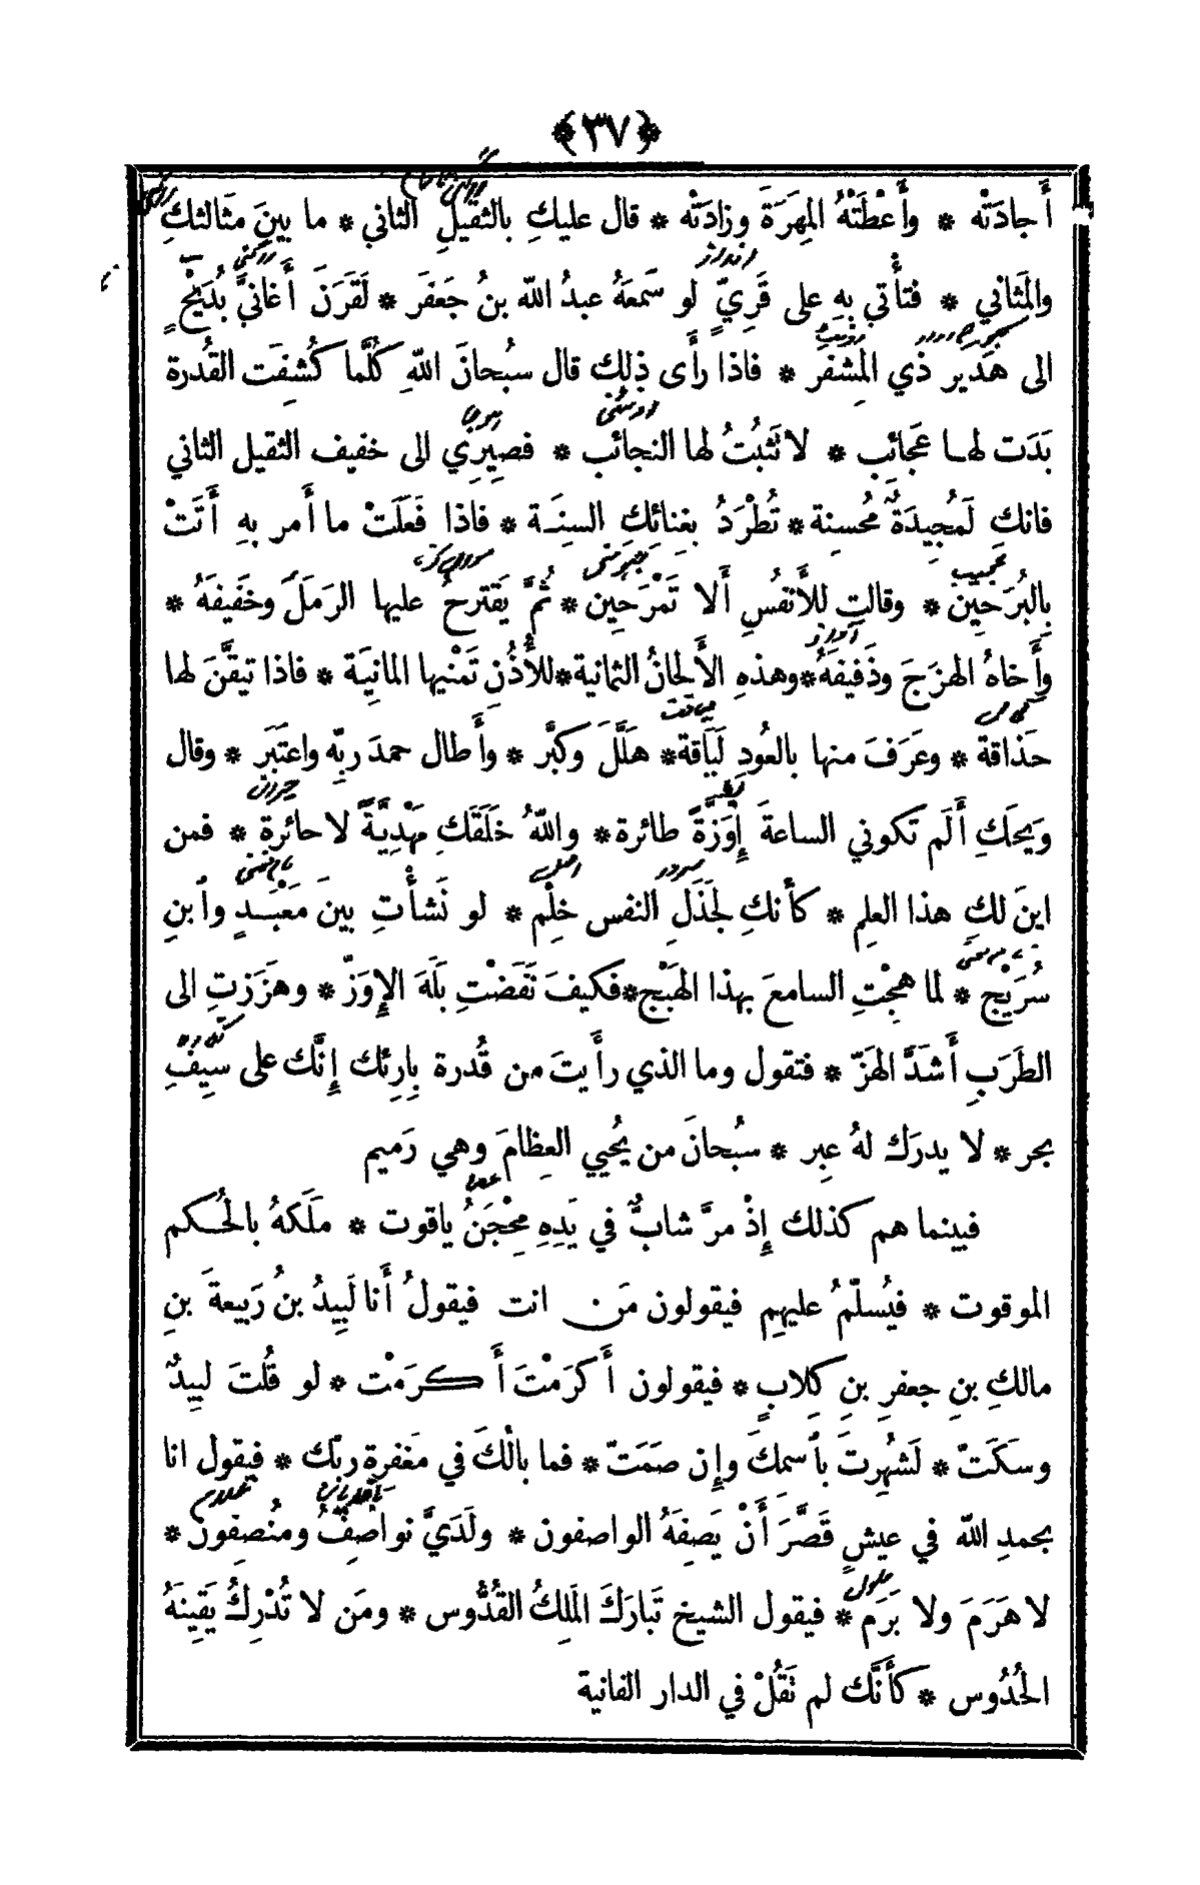 ﴿٣٧﴾
أَجادَتْه * وأَعْطَتْهُ المِهَرَةَ وزادَتْه * قال عليكِ بالثقيلِ الثاني * ما بينَ مَثالثكِ
والمَثاني * فتأْتي بهِ على قَرِيٍّ لو سَمعَهُ عبدُ الله بنُ جَعفَر * لَقرَنَ أَغانيَّ بُدَيْحٍ
الى هَدير ذي المِشفَر * فاذا رأَى ذلِك قال سبُحانَ اللهِ كُلَّما كُشِفَت القُدرة
بَدَت لهـا عَجائِب * لا تَثبُتُ لها النجائب * فصِيرِي الى خفيف الثقيل الثاني
فانكِ لَمُجِيدَةٌ مُحسِنة * تُطْرَدُ بغِنائكِ السِنَـة * فاذا فَعَلَتْ ما أَمر بهِ أَتَتْ
بِالبُرَحِين * وقالت للأَنفُسِ أَلا تَمْرَحِين * ثُمَّ يَقترحُ عليها الرَمَلَ وخَفيفَهُ *
وأَخاهُ الهزَجَ وذَفيفهُ * وهذهِ الأَلحانُ الثمانية * للأُذُنِ تَمْنيها المانِيَة * فاذا تيقَّنَ لها
حَذاقة * وعَرَفَ منها بالعُودِ لَباقة * هَلَّلَ وكبَّر * وأَطال حمدَ ربِّه واعتَبَر * وقال
وَيحَكِ أَلَم تكوني الساعةَ إِوَزَّةً طائرة * واللهُ خَلَقَكِ مَهْدِيَّةً لا حائرة * فمن
اينَ لكِ هذا العلِم * كأَنكِ لجَذَلِ النفس خِلْم * لو نَشأْتِ بينَ مَعْبَـدٍ وٱبنِ
سُرَيْج * لما هجْتِ السامعَ بهذا الهَبْج * فكيفَ نَفَضْتِ بَلَهَ الإِوَزّ * وهَزَزتِ الى
الطَرَبِ أَشَدَّ الهَزّ * فتقول وما الذي رأَيتَ من قُدرة بارِئك إِنَّك على سِيفِ
بحر * لا يدرَك لهُ عبِر * سبُحانَ من يُحيي العِظامَ وهي رَميم
فبينما هم كذلك إِذْ مرَّ شابٌّ في يَدِهِ مِحْجَنُ ياقوت * ملَكهُ بالحُكم
الموقوت * فيُسلّمُ عليهِم فيقولون مَن انت فيقولُ أَنا لَبِيدُ بنُ رَبيعةَ بنِ
مالكِ بنِ جعفرِ بنِ كِلابٍ * فيقولون أَكرَمْتَ أَكـرَمْت * لو قُلتَ لبِيدٌ
وسكَتّ * لَشُهِرتَ بٱسمِكَ وإِن صَمَتّ * فما بالُكَ في مَغفرةِ ربّك * فيقول انا
بحمدِ الله في عيشٍ قَصَّرَ أَنْ يَصِفَهُ الواصفون * ولَدَيَّ نواصِفُ ومنُصِفون *
لا هَرَمَ ولا بَرَم * فيقول الشيخ تَبارَكَ المَلِكُ القُدُّوس * ومَن لا تُدْرِكُ يَقِينَهُ
الحُدُوس * كأَنَّك لم تَقُلْ في الدار الفانية